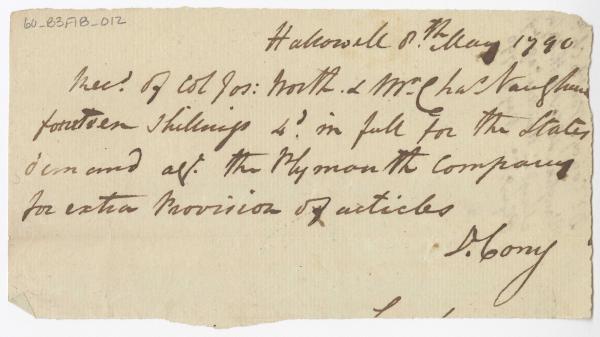 60_B3F1B_012
Hallowell 8.th May 1790
Rec.d of Col Jos: North & Mr. Chas Vaughan
fourteen Shillings 4.d in full for the States
demand agt. the Plymouth Company
for extra Provision of articles
D. Cony